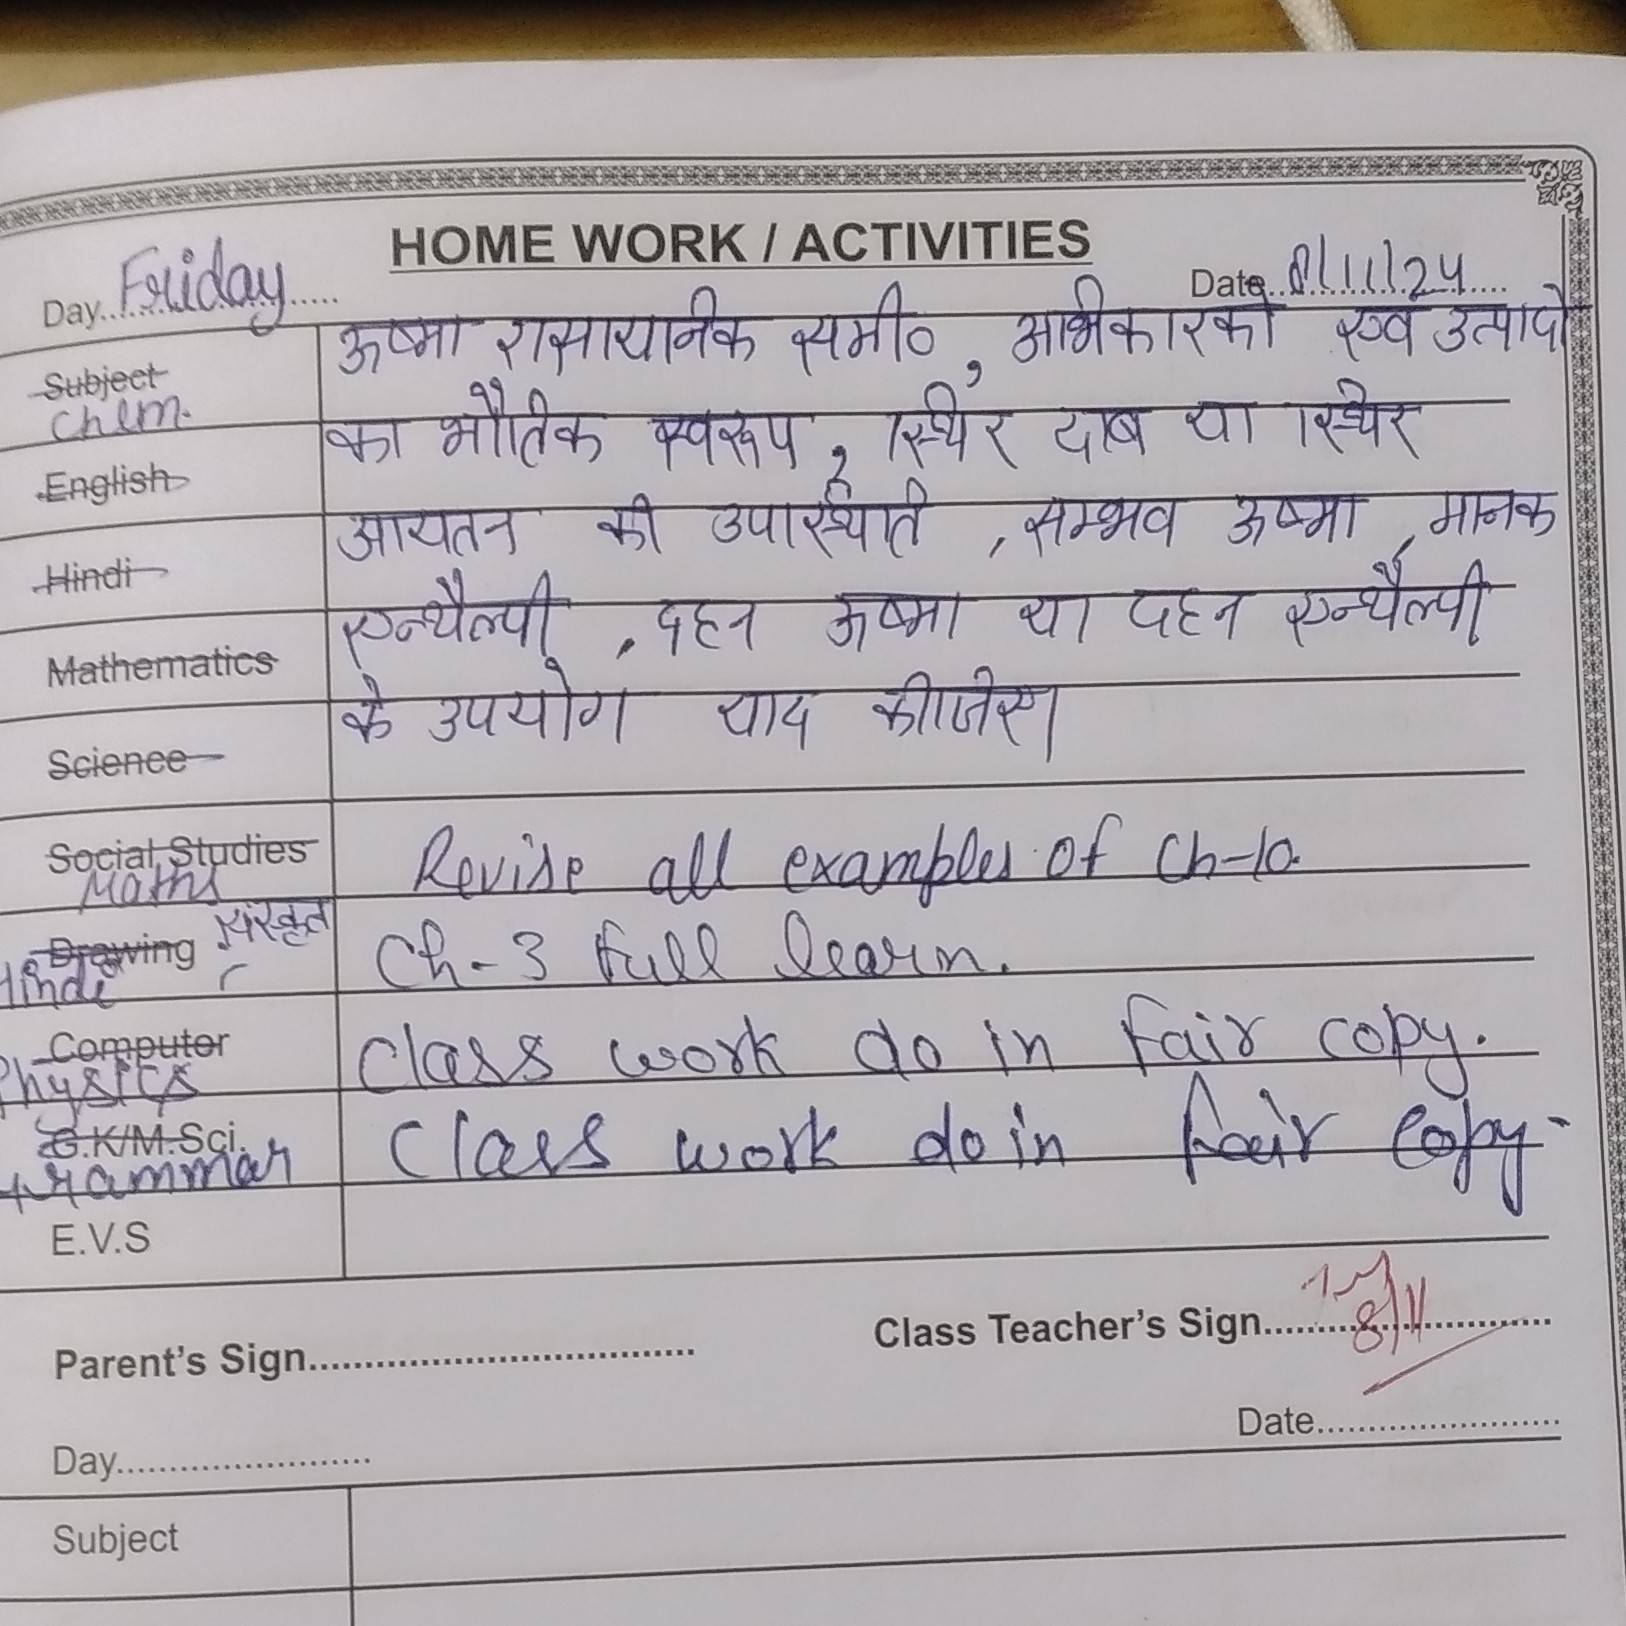 HOME WORK / ACTIVITIES
Day..Friday..... Date..8/11/24....
Subject ऊष्मा रासायनिक समी०, अभिकारको एवं उत्पादो
Chem.
का भौतिक स्वरूप, स्थिर दाब या स्थिर
English
आयतन की उपस्थिति, सम्भव ऊष्मा, मानक
Hindi
एन्थैल्पी, दहन ऊष्मा या दहन एन्थैल्पी
Mathematics
के उपयोग याद कीजिए।
Science
Social Studies
Maths Revise all examples of Ch-10.
Drawing संस्कृत
Hindi Ch-3 full learn.
Computer
Physics Class work do in fair copy.
G.K/M.Sci.
Grammar Class work do in fair copy.
E.V.S
Parent's Sign.................................. Class Teacher's Sign.......................... 8/11
Day....................... Date......................
Subject